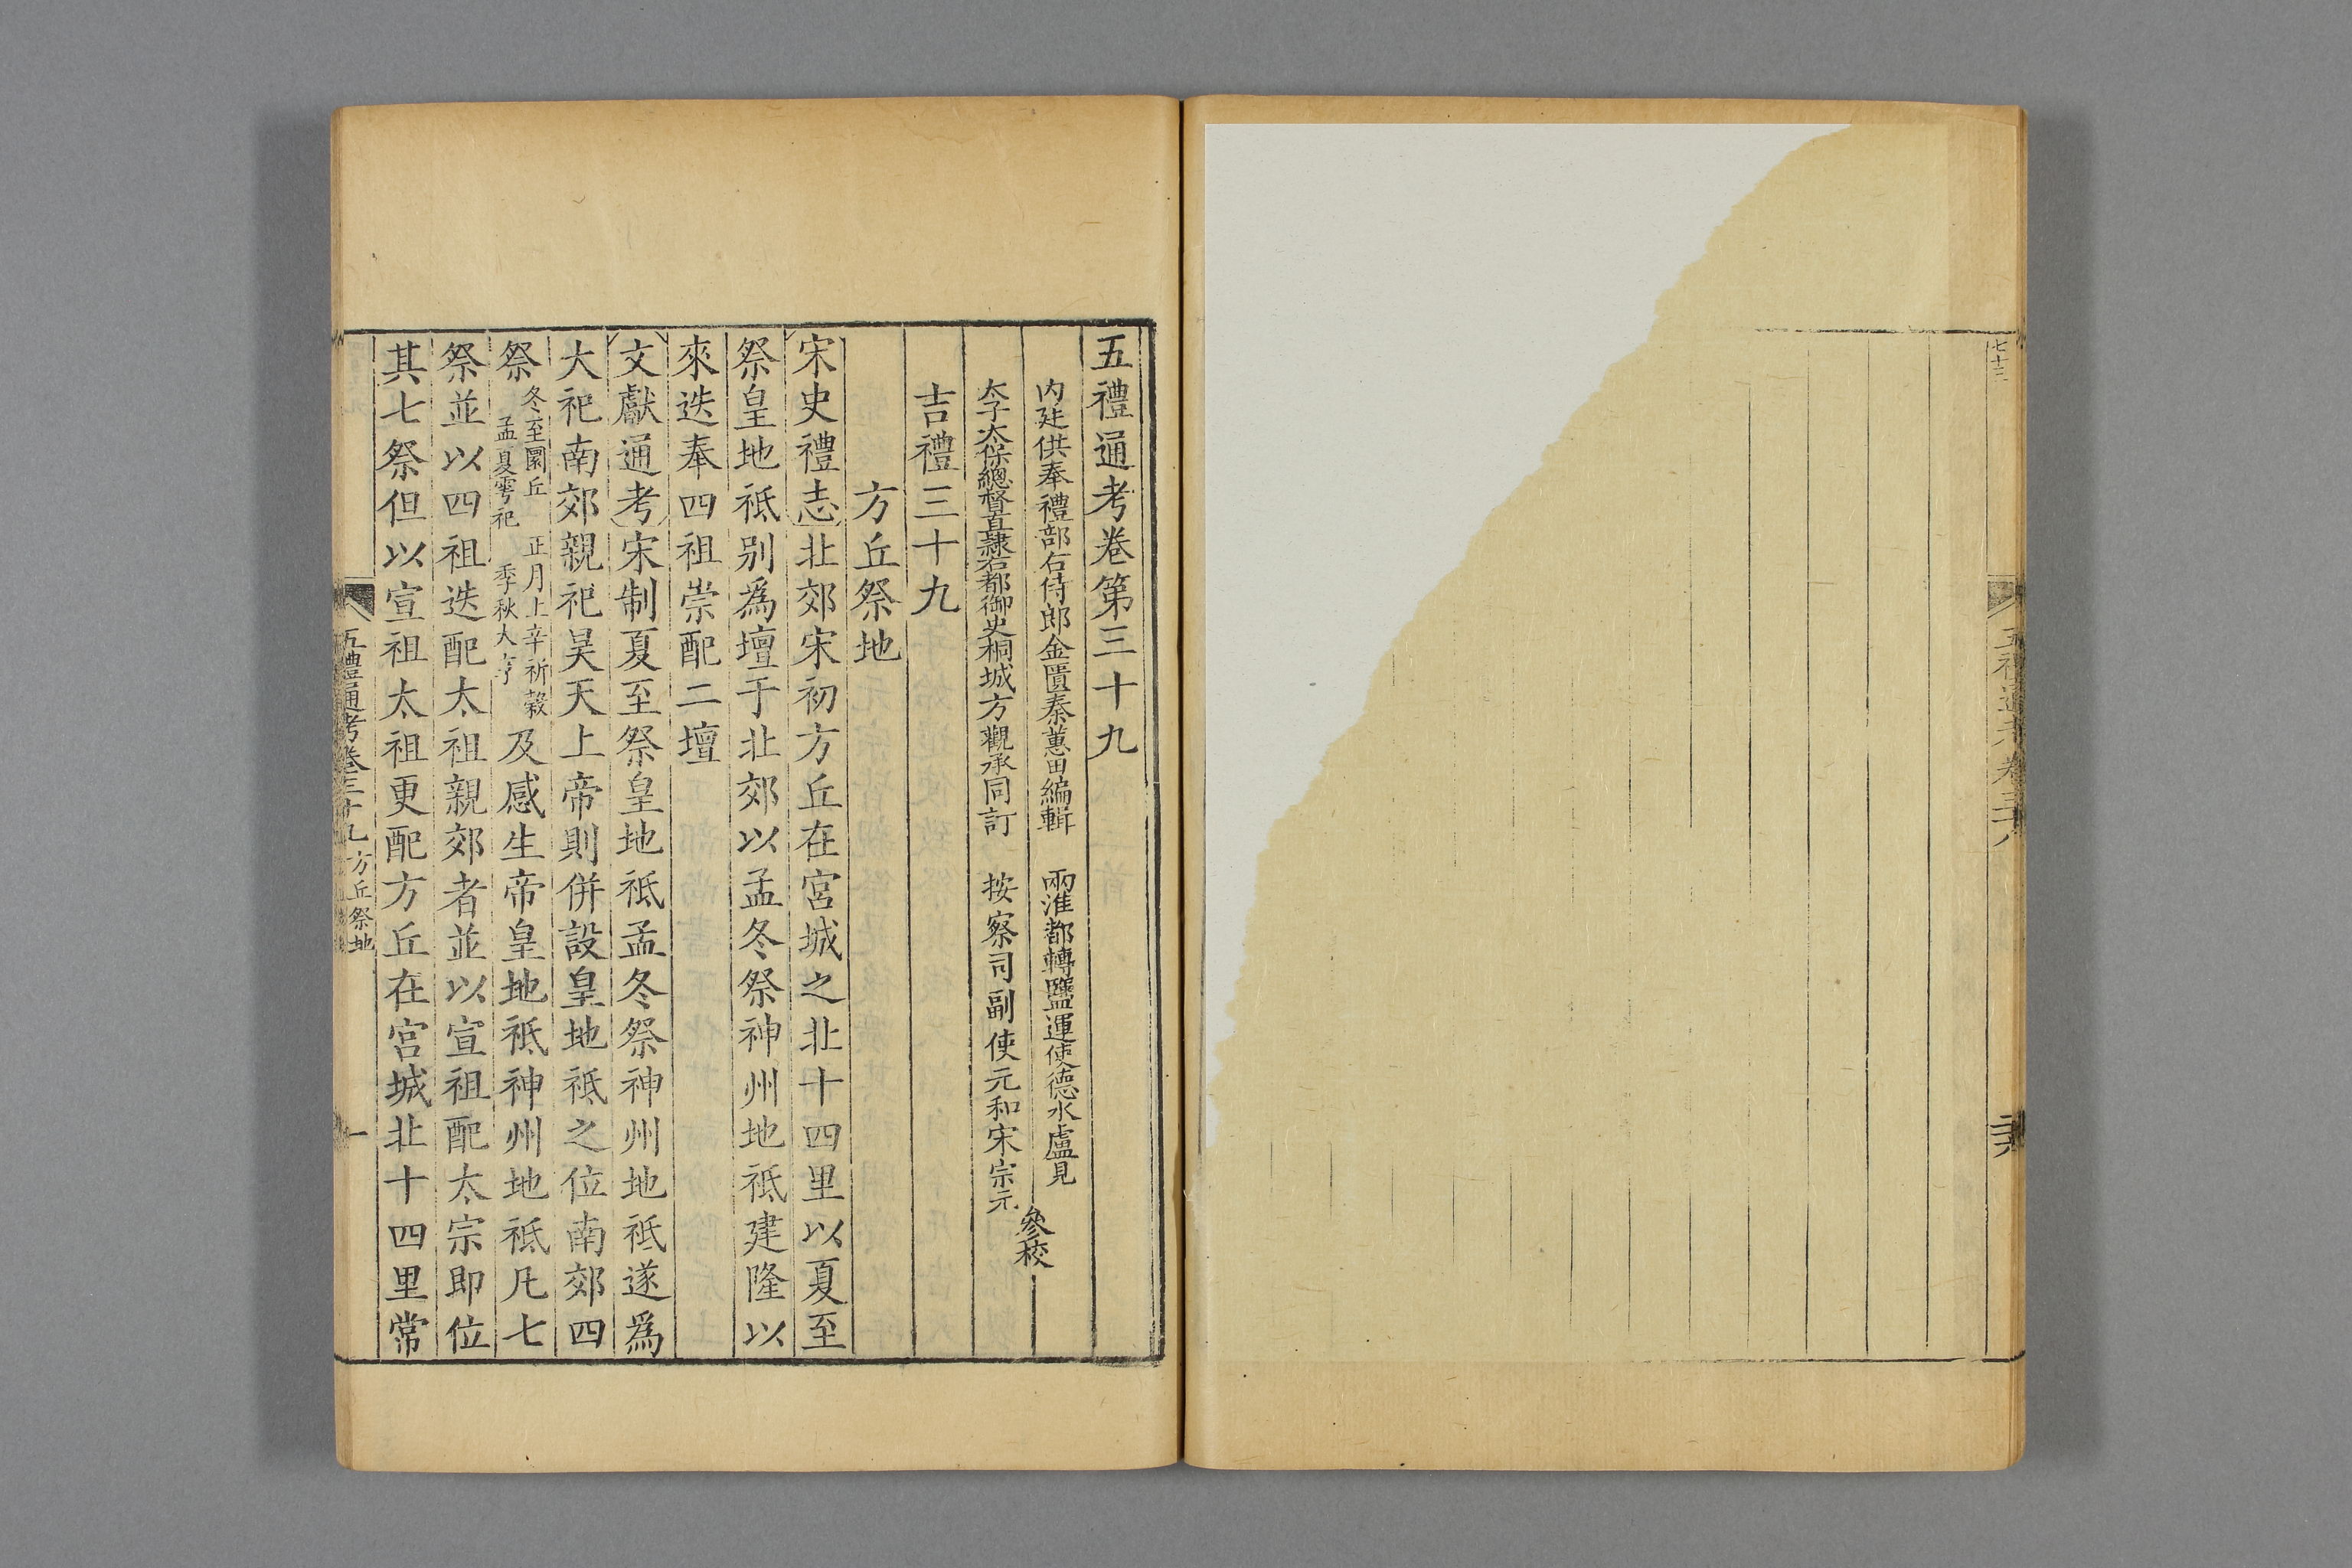 七十三
五禮通考卷三十八
五禮通考卷第三十九
内廷供奉禮部右侍郎金匱秦蕙田編輯　兩淮都轉鹽運使德水盧見
太子太保總督直隷右都御史桐城方觀承同訂　按察司副使元和宋宗元
參校
吉禮三十九
方丘祭地
宋史禮志北郊宋初方丘在宮城之北十四里以夏至
祭皇地祗别爲壇于北郊以孟冬祭神州地祗建隆以
來迭奉四祖崇配二壇
文獻通考宋制夏至祭皇地祗孟冬祭神州地祗遂爲
大祀南郊親祀昊天上帝則併設皇地祗之位南郊四
祭冬至圜丘　正月上辛祈穀孟夏雩祀　季秋大享及感生帝皇地祗神州地祗凡七
祭並以四祖迭配太祖親郊者並以宣祖配太宗即位
其七祭但以宣祖太祖更配方丘在宮城北十四里常
五禮通考卷三十九　方丘祭地
一